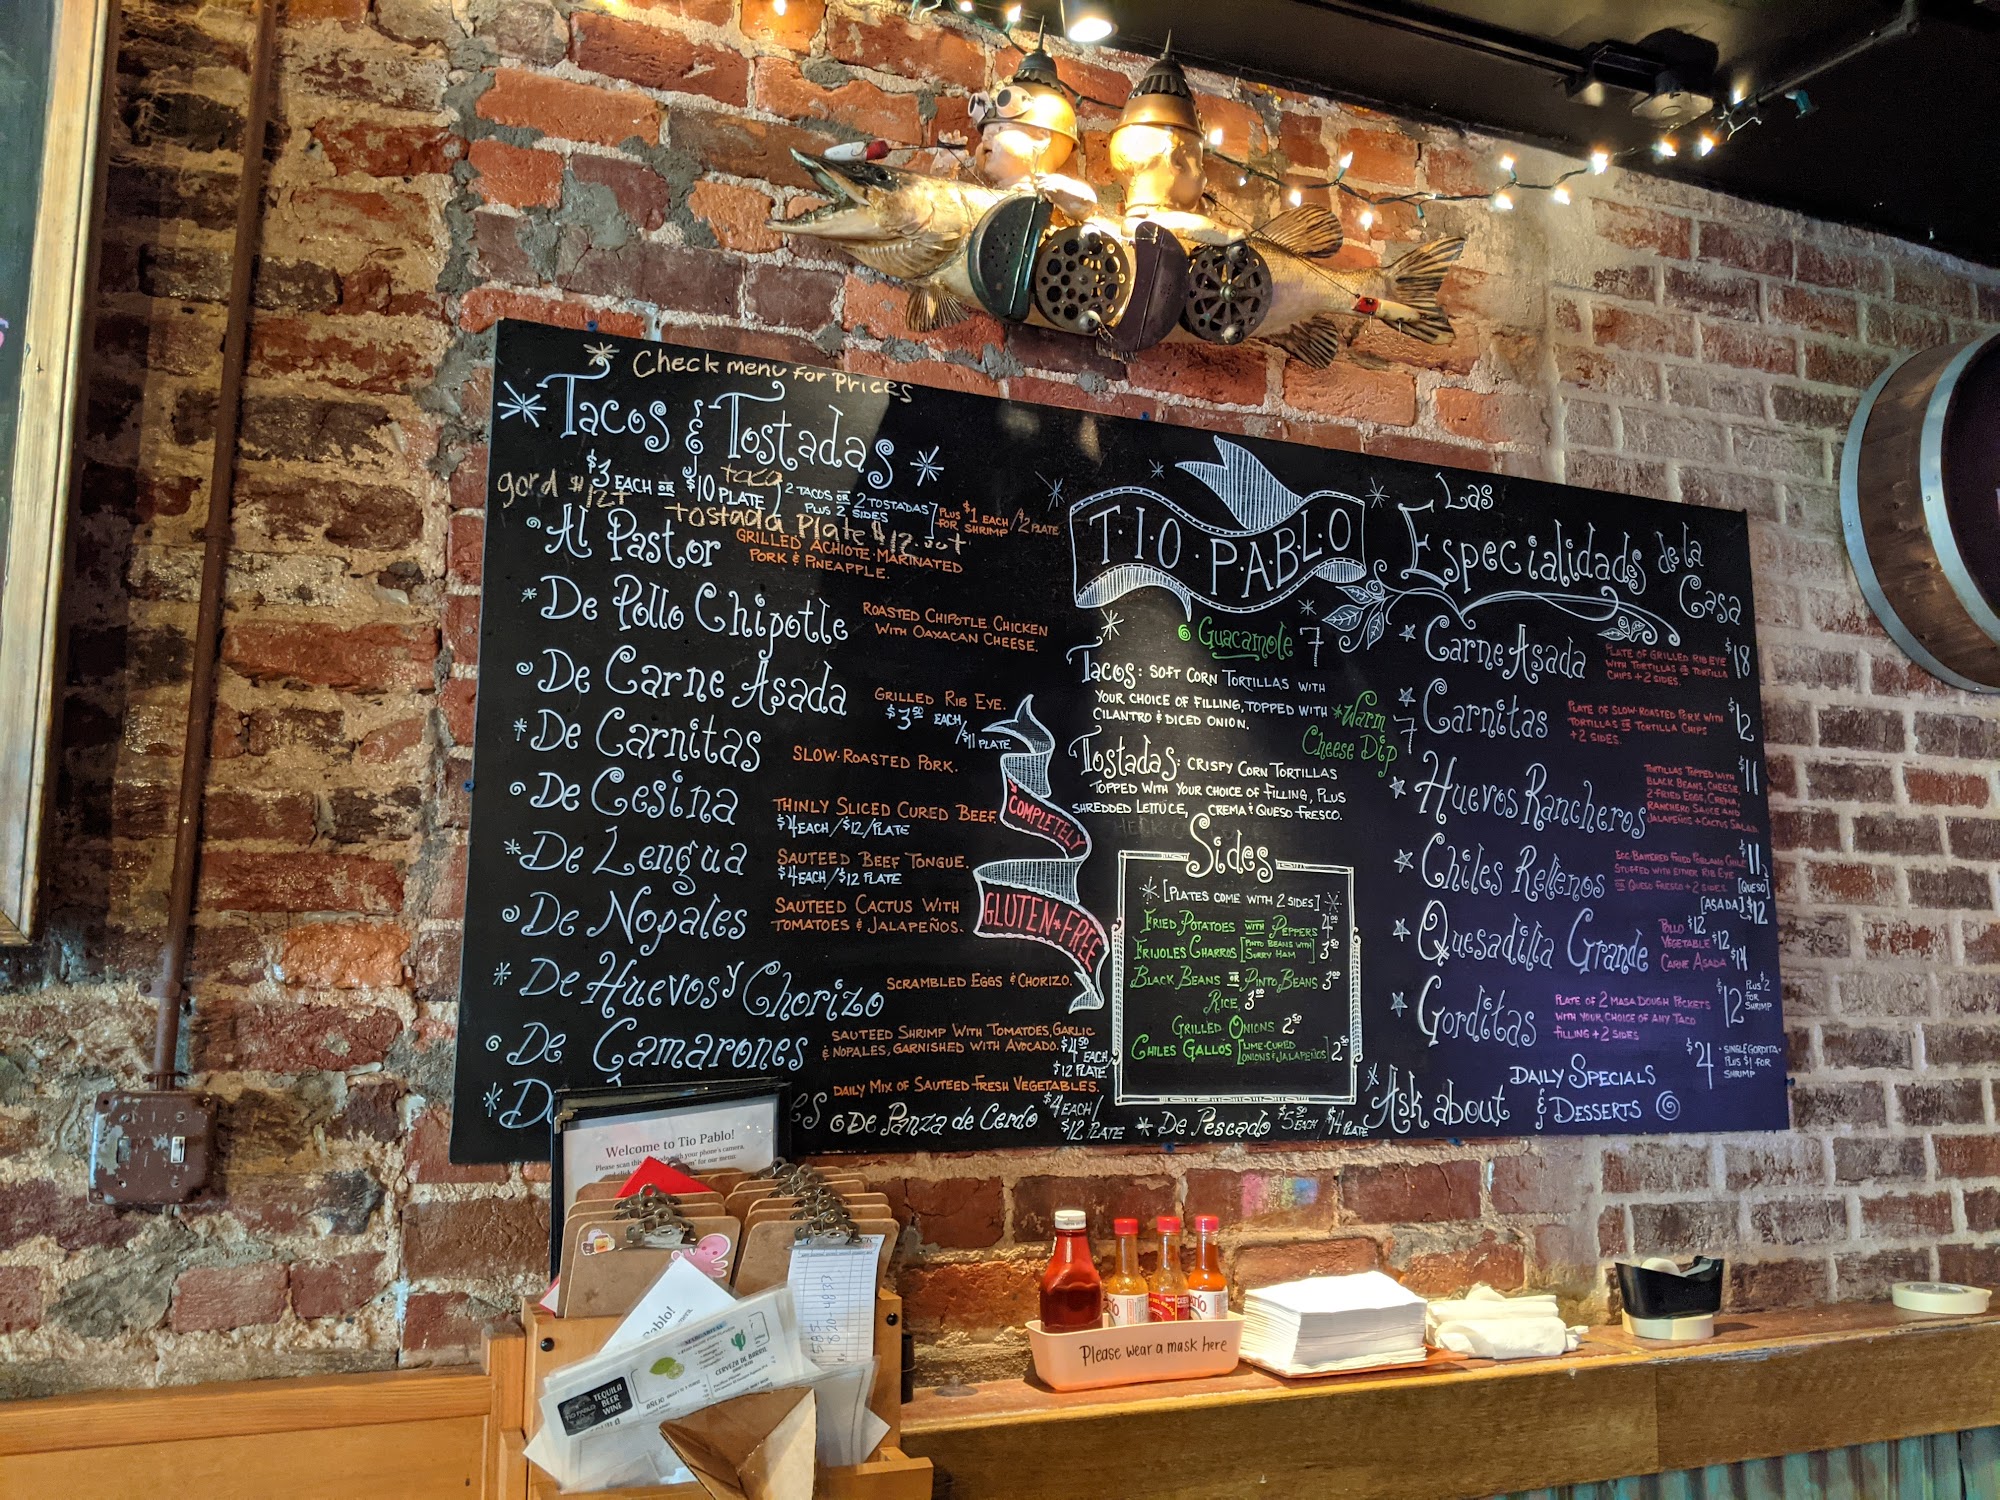 Check menu for Prices
Tacos & Tostadas
$3 EACH OR $10 PLATE
taca
2 TACOS OR 2 TOSTADAS
PLUS 2 SIDES
PLUS $1 EACH / $2 PLATE
FOR SHRIMP
gord $12+
tostada Plate $12
Al Pastor
GRILLED ACHIOTE-MARINATED
PORK & PINEAPPLE.
De Pollo Chipotle
ROASTED CHIPOTLE CHICKEN
WITH OAXACAN CHEESE.
De Carne Asada
GRILLED RIB EYE.
$3.50 EACH/
$11 PLATE
De Carnitas
SLOW-ROASTED PORK.
De Cesina
THINLY SLICED CURED BEEF
$4 EACH/$12/PLATE
De Lengua
SAUTEED BEEF TONGUE.
$4 EACH/$12 PLATE
De Nopales
SAUTEED CACTUS WITH
TOMATOES & JALAPEÑOS.
De Huevos y Chorizo
SCRAMBLED EGGS & CHORIZO.
De Camarones
SAUTEED SHRIMP WITH TOMATOES, GARLIC
& NOPALES, GARNISHED WITH AVOCADO.
$4.50 EACH
$12 PLATE
DAILY MIX OF SAUTEED FRESH VEGETABLES.
$4 EACH/
$12 PLATE
De Panza de Cerdo
De Pescado $5.50 EACH/$14 PLATE
COMPLETELY
GLUTEN FREE
T·I·O·P·A·B·L·O
Guacamole 7
Tacos: SOFT CORN TORTILLAS WITH
YOUR CHOICE OF FILLING, TOPPED WITH
CILANTRO & DICED ONION.
Warm
Cheese Dip 7
Tostadas: CRISPY CORN TORTILLAS
TOPPED WITH YOUR CHOICE OF FILLING, PLUS
SHREDDED LETTUCE, CREMA & QUESO FRESCO.
Sides
[PLATES COME WITH 2 SIDES]
FRIED POTATOES WITH PEPPERS 4.00
FRIJOLES CHARROS [PINTO BEANS WITH SURRY HAM] 3.50
BLACK BEANS OR PINTO BEANS 3.00
RICE 3.00
GRILLED ONIONS 2.50
CHILES GALLOS [LIME-CURED ONIONS & JALAPEÑOS] 2.50
Las
Especialidades de la
Casa
Carne Asada
PLATE OF GRILLED RIB EYE
WITH TORTILLAS OR TORTILLA
CHIPS + 2 SIDES.
$18
Carnitas
PLATE OF SLOW-ROASTED PORK WITH
TORTILLAS OR TORTILLA CHIPS
+ 2 SIDES.
$12
Huevos Rancheros
TORTILLAS TOPPED WITH
BLACK BEANS, CHEESE,
2 FRIED EGGS, CREMA,
RANCHERO SAUCE AND
JALAPEÑOS + CACTUS SALAD
$11
Chiles Rellenos
EGG-BATTERED FRIED POBLANO CHILE
STUFFED WITH EITHER RIB EYE
OR QUESO FRESCO + 2 SIDES
$11
[QUESO]
[ASADA] $12
Quesadilla Grande
POLLO $12
VEGETABLE $12
CARNE ASADA $14
Gorditas
PLATE OF 2 MASA DOUGH POCKETS
WITH YOUR CHOICE OF ANY TACO
FILLING + 2 SIDES
$12
PLUS $2
FOR
SHRIMP
$4
SINGLE GORDITA
PLUS $1 FOR
SHRIMP
Ask about DAILY SPECIALS
& DESSERTS
Welcome to Tio Pablo!
Pablo!
MARGARITAS
CERVEZA DE BARRIL
AÑEJO
TIO PABLO
TEQUILA
BEER
WINE
Please wear a mask here